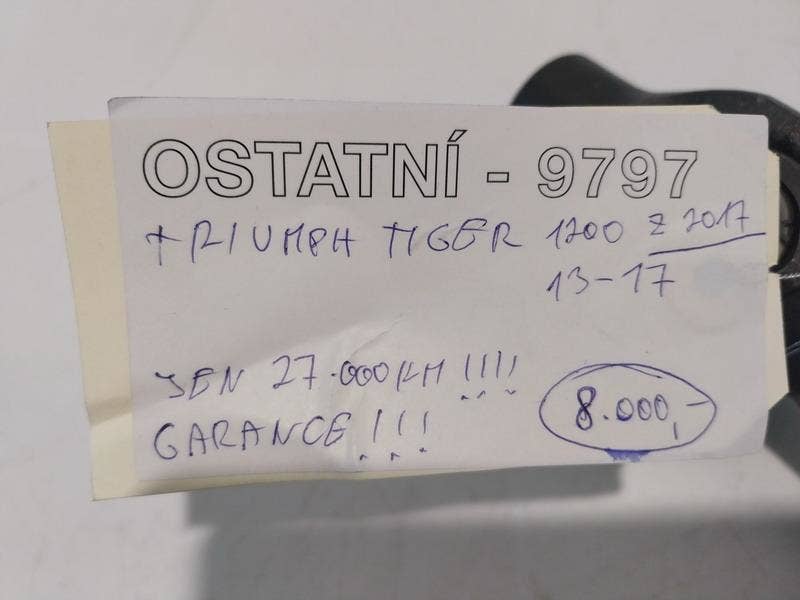 OSTATNÍ - 9797
TRIUMPH TIGER 1200 Z 2017
13-17
JEN 27.000KM !!!!
GARANCE!!!
8.000,-